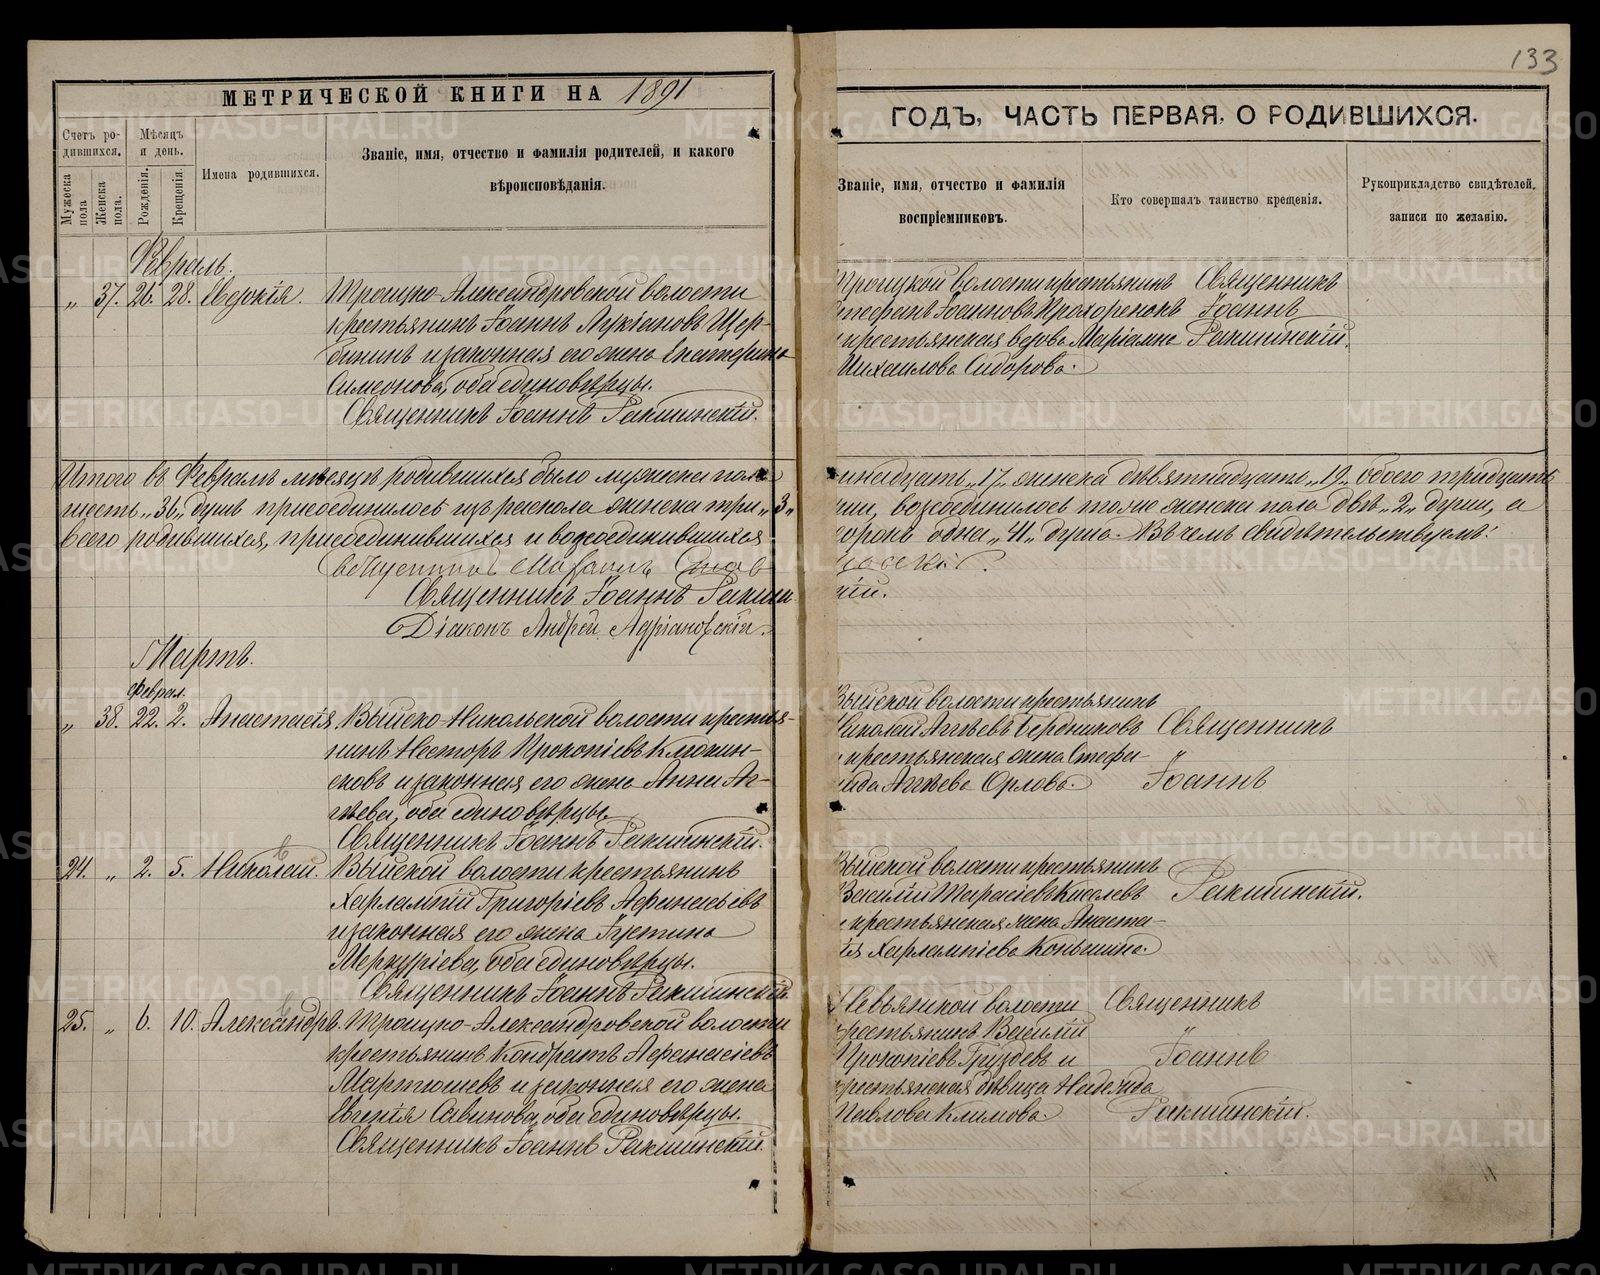 133
МЕТРИЧЕСКОЙ КНИГИ НА 1891
ГОДЪ, ЧАСТЬ ПЕРВАЯ, О РОДИВШИХСЯ.
Счетъ ро-
дившихся.
Мѣсяцъ
и день.
Мужеска
пола
Женска
пола.
Рожденія.
Крещенія.
Имена родившихся.
Званіе, имя, отчество и фамилія родителей, и какого
вѣроисповѣданія.
Званіе, имя, отчество и фамилія
воспріемниковъ.
Кто совершалъ таинство крещенія.
Рукоприкладство свидѣтелей
записи по желанію.
Февраль.
„ 37. 26. 28. Евдокія. Троицко-Александровской волости
крестьянинъ Іоаннъ Лукіановъ Щер-
бининъ и законная его жена Екатерина
Симеонова, оба единовѣрцы.
Священникъ Іоаннъ Ракшинскій.
Троицкой волости крестьянинъ
Стефанъ Іоанновъ Прохоренокъ
крестьянская вдова Маріамна
Михаилова Сидорова.
Священникъ
Іоаннъ
Ракшинскій.
Итого въ Февралѣ мѣсяцѣ родившихся было мужска пола
шесть „36„ душъ присоединилось изъ раскола женска три „3„
всего родившихся, присоединившихся и возсоединившихся
Священникъ Іоаннъ Ракшин
Діаконъ Андрей Адріановскій.
надцать „17„ женска девятнадцать „19„ обоего тридцать
возсоединилось тоже женска пола двѣ „2„ души, а
сорокъ одна „41„ душа. Въ чемъ свидѣтельствуемъ:
скій.
Мартъ.
Феврал.
„ 38. 22. 2. Анастасія. Выйско-Никольской волости крестья-
нинъ Несторъ Прокопіевъ Клюкин-
сковъ и законная его жена Анна Аг-
гѣева, оба единовѣрцы.
Священникъ Іоаннъ Ракшинскій.
Выйской волости крестьянинъ
Николай Аггѣевъ Бердниковъ
крестьянская жена Стефа-
нида Аггѣева Орлова.
Священникъ
„
Іоаннъ
24. „ 2. 5. Николай. Выйской волости крестьянинъ
Харлампій Григоріевъ Афанасіевъ
и законная его жена Іустина
Меркуріева, оба единовѣрцы.
Священникъ Іоаннъ Ракшинскій.
Выйской волости крестьянинъ
Василій Тарасіевъ Киселевъ
крестьянская жена Анаста-
сія Харлампіева Коньшина.
Ракшинскій.
25. „ 6. 10. Александръ. Троицко-Александровской волости
крестьянинъ Кондратъ Афанасіевъ
Мартюшевъ и законная его жена
Евгенія Савинова, оба единовѣрцы.
Священникъ Іоаннъ Ракшинскій.
Невьянской волости
крестьянинъ Василій
Прокопіевъ Груздевъ и
крестьянская дѣвица Надежда
Павлова Климова.
Священникъ
„
Іоаннъ
Ракшинскій.
METRIKI.GASO-URAL.RU